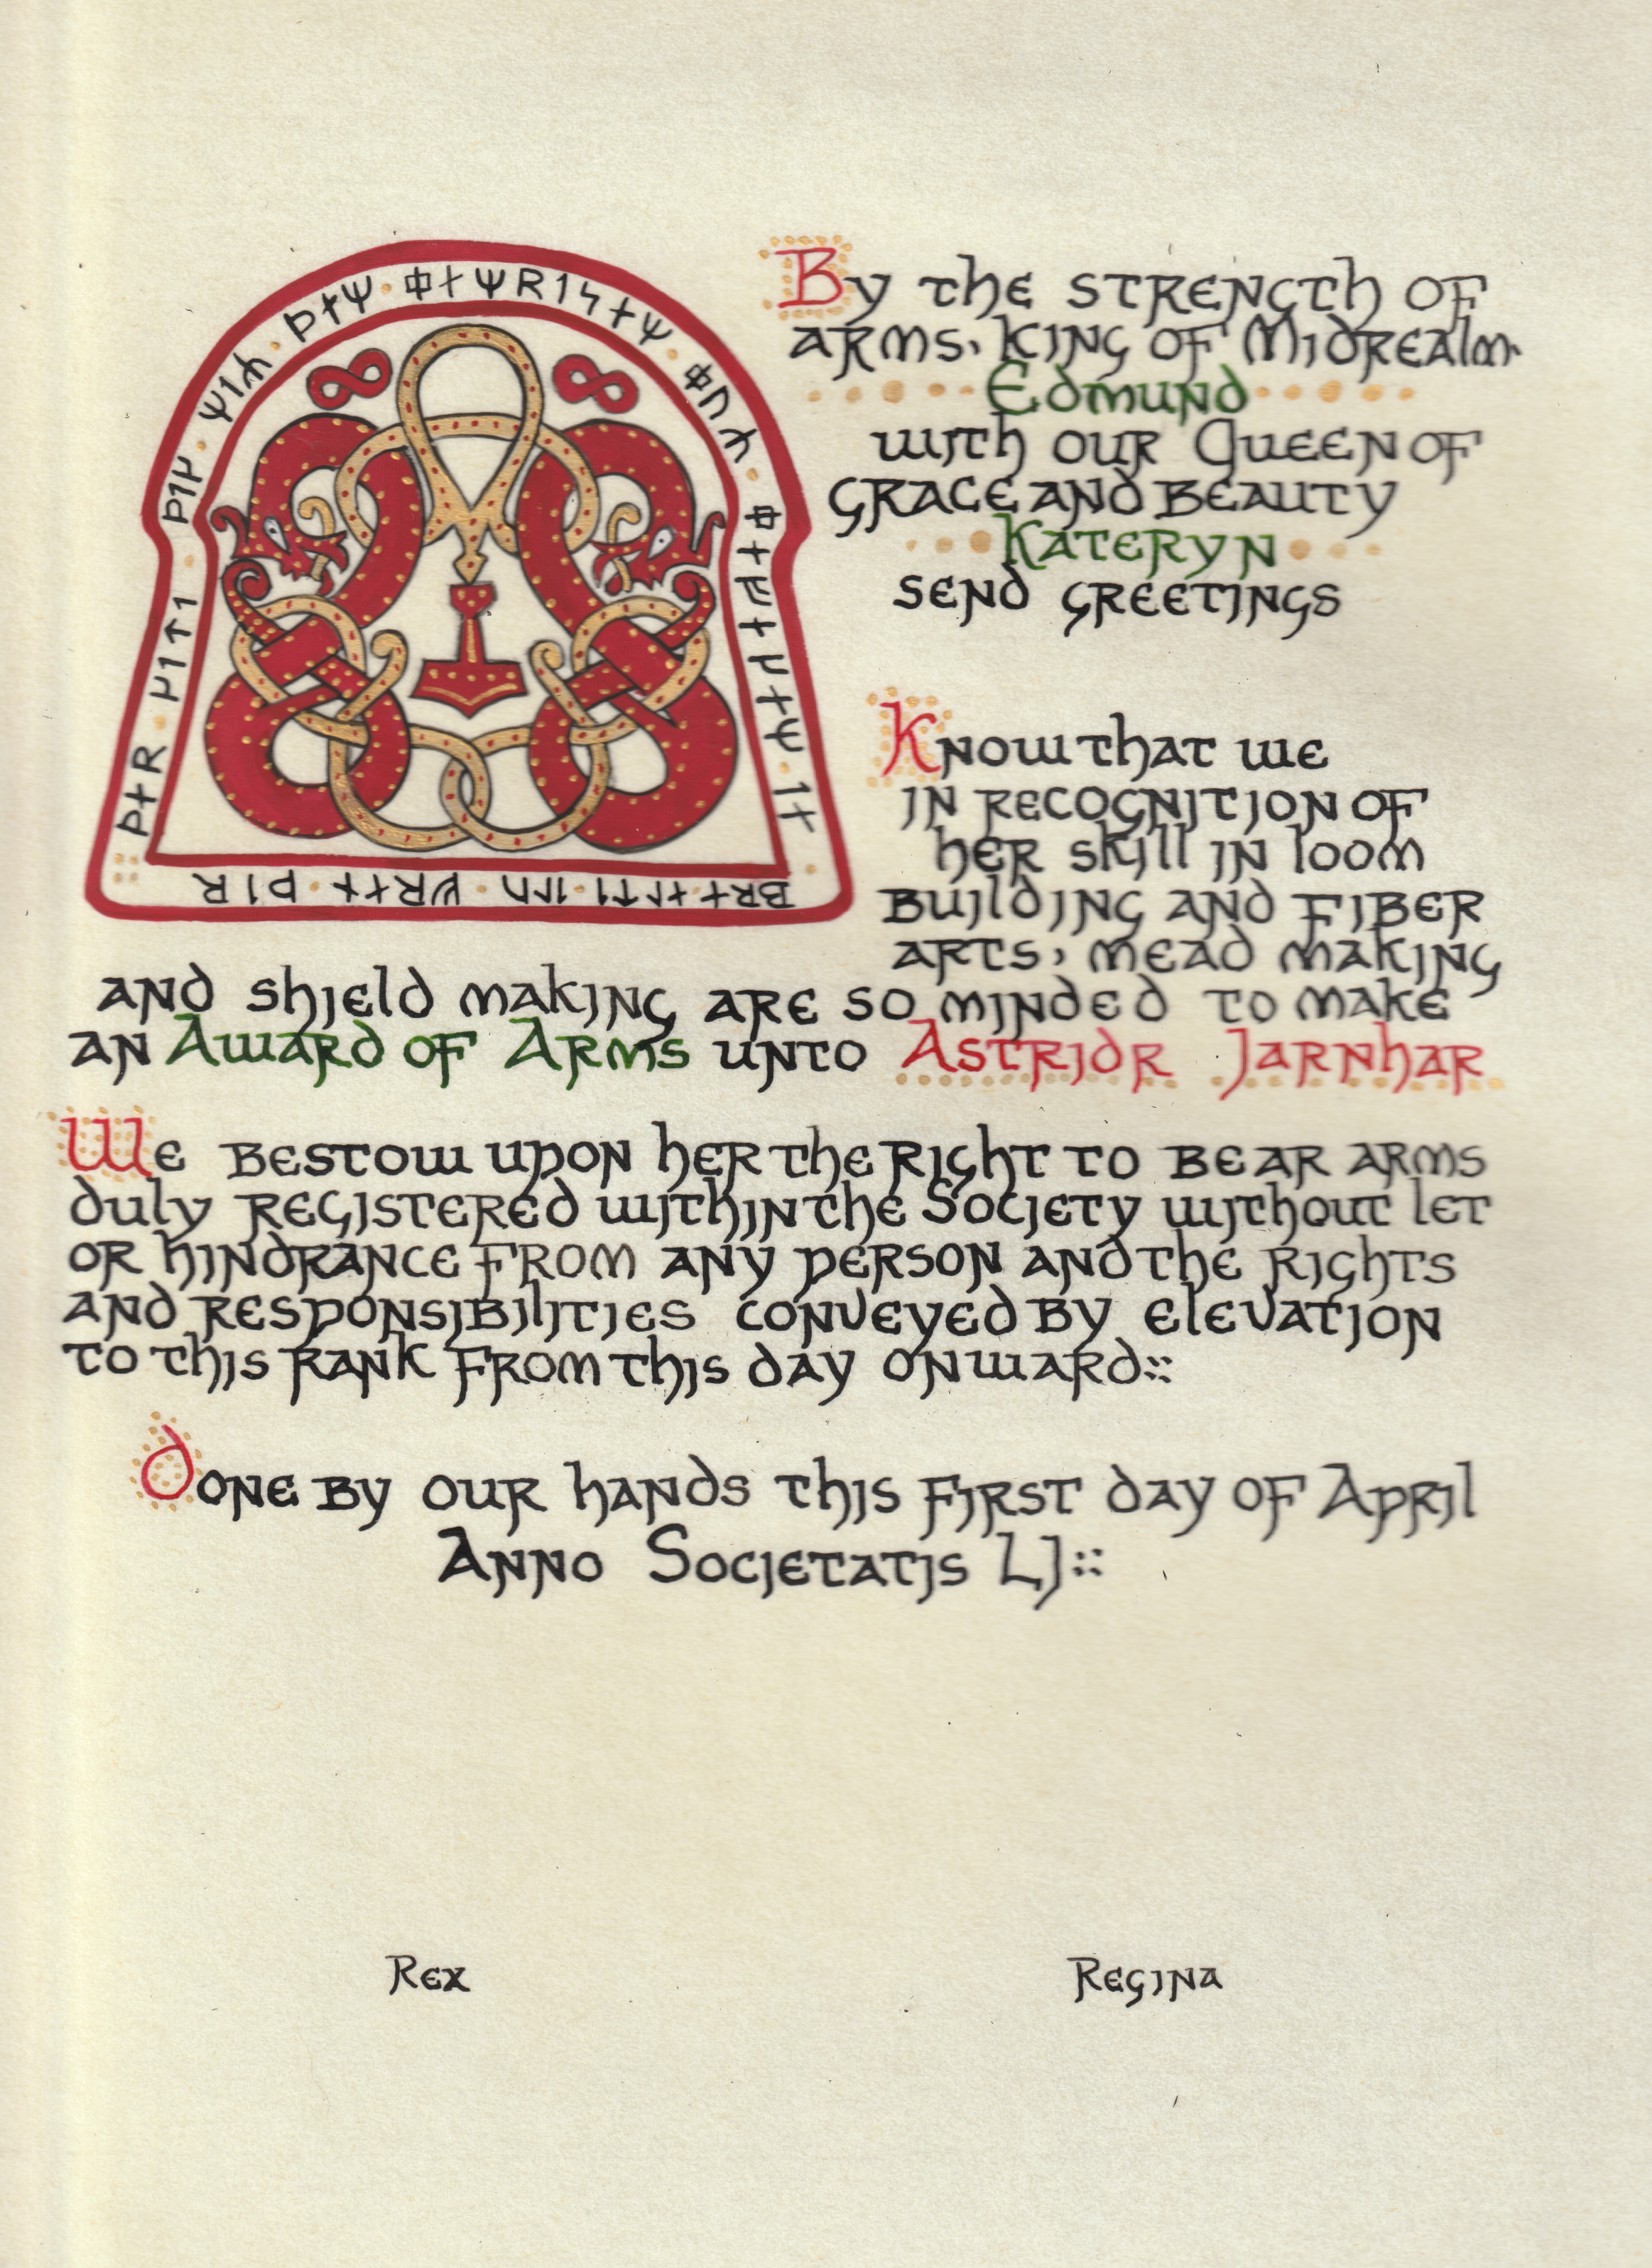 By the strength of
arms, King of Midrealm
Edmund
with our Queen of
Grace and Beauty
Kateryn
send greetings
Know that we
in recognition of
her skill in loom
building and fiber
arts, mead making
and shield making are so minded to make
an Award of Arms unto Astridr Jarnhar
We bestow upon her the right to bear arms
duly registered within the Society without let
or hindrance from any person and the rights
and responsibilities conveyed by elevation
to this rank from this day onward::
Done by our hands this first day of April
Anno Societatis LI::
Rex Regina